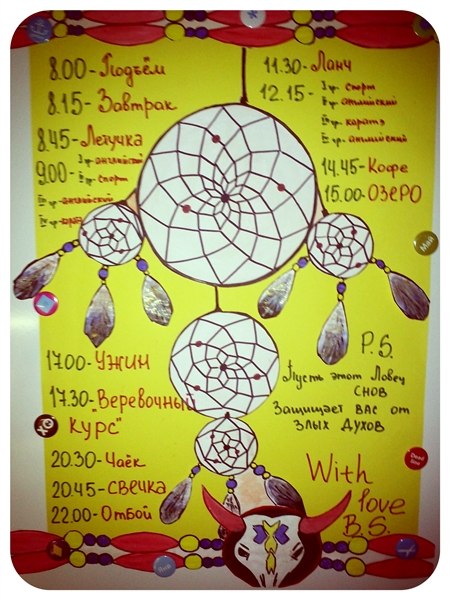 8.00-Подъём
8.15-Завтрак
8.45-Летучка
9.00-I гр.-английский
II гр.-спорт
III гр.-английский
IV гр.-
11.30-Ланч
12.15-I гр. спорт
II гр. английский
III гр. каратэ
IV гр.-английский
14.45-Кофе
15.00-ОЗЕРО
17.00-УЖИН
17.30-"Веревочный
курс"
20.30-Чаёк
20.45-СВЕЧКА
22.00-ОТБОЙ
P.S.
Пусть этот Ловец
СНОВ
Защищает ВАС от
ЗЛЫХ ДУХОВ
With
love
B.S.
Май